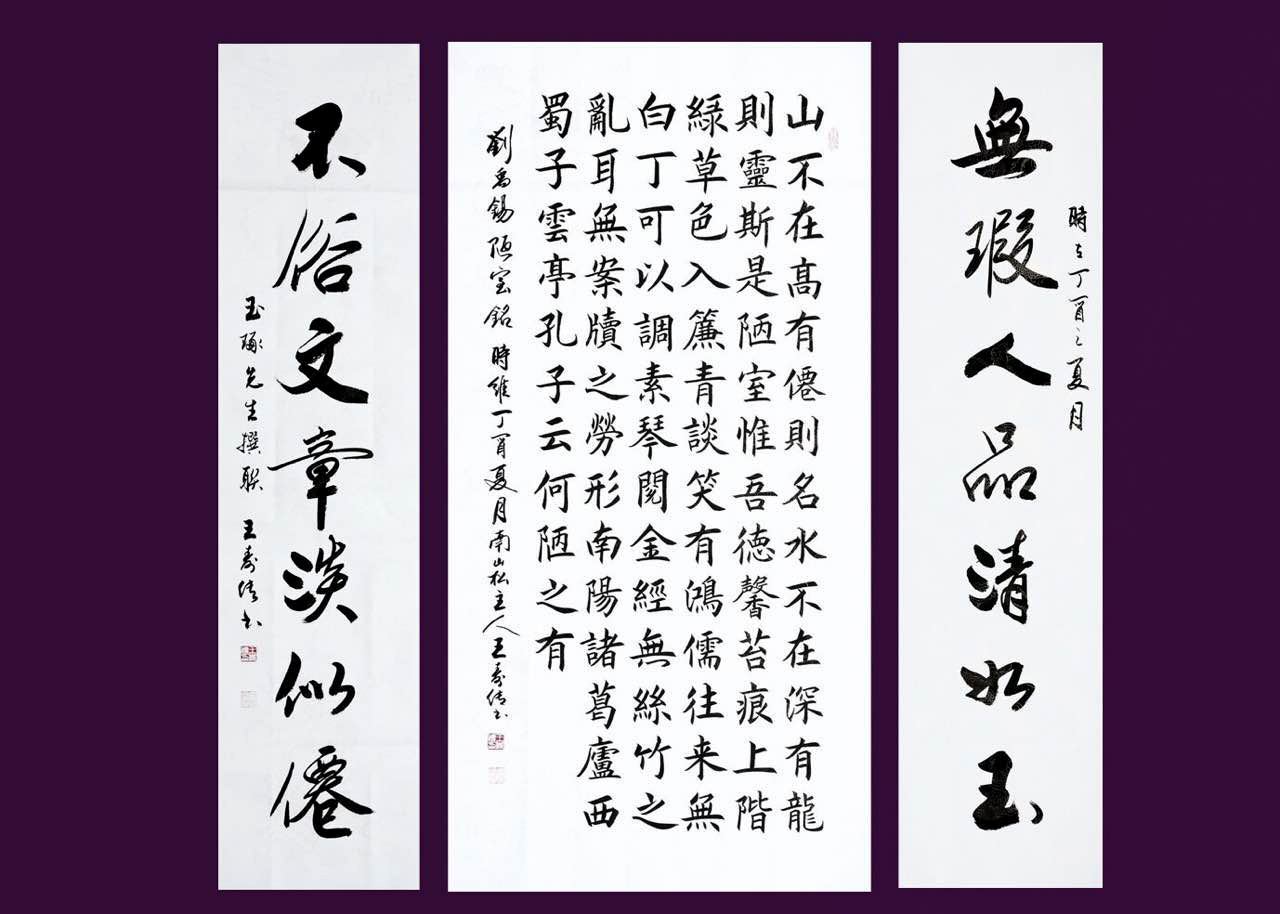 時在丁酉之夏月
無瑕人品清如玉
山不在高有僊則名水不在深有龍
則靈斯是陋室惟吾德馨苔痕上階
綠草色入簾青談笑有鴻儒往来無
白丁可以調素琴閱金經無絲竹之
亂耳無案牘之勞形南陽諸葛廬西
蜀子雲亭孔子云何陋之有
劉禹錫陋室銘 時維丁酉夏月南山松主人王寿书
不俗文章淡似僊
玉琢先生撰聯 王寿书